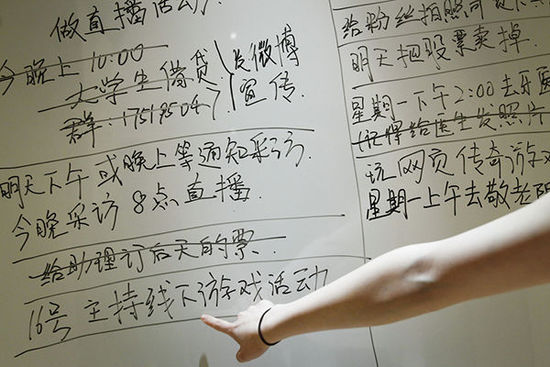 做直播活动
今晚上 10:00
大学生借贷
群：17519504
发微博
宣传.
明天下午或晚上等通知采访.
今晚采访 8点直播
给助理订后天的票.
16号 主持线下游戏活动
给粉丝拍照
明天把股票卖掉.
星期一下午2:00去牙医
(记得给医生发照片
玩网页传奇游戏
星期一上午去敬老院